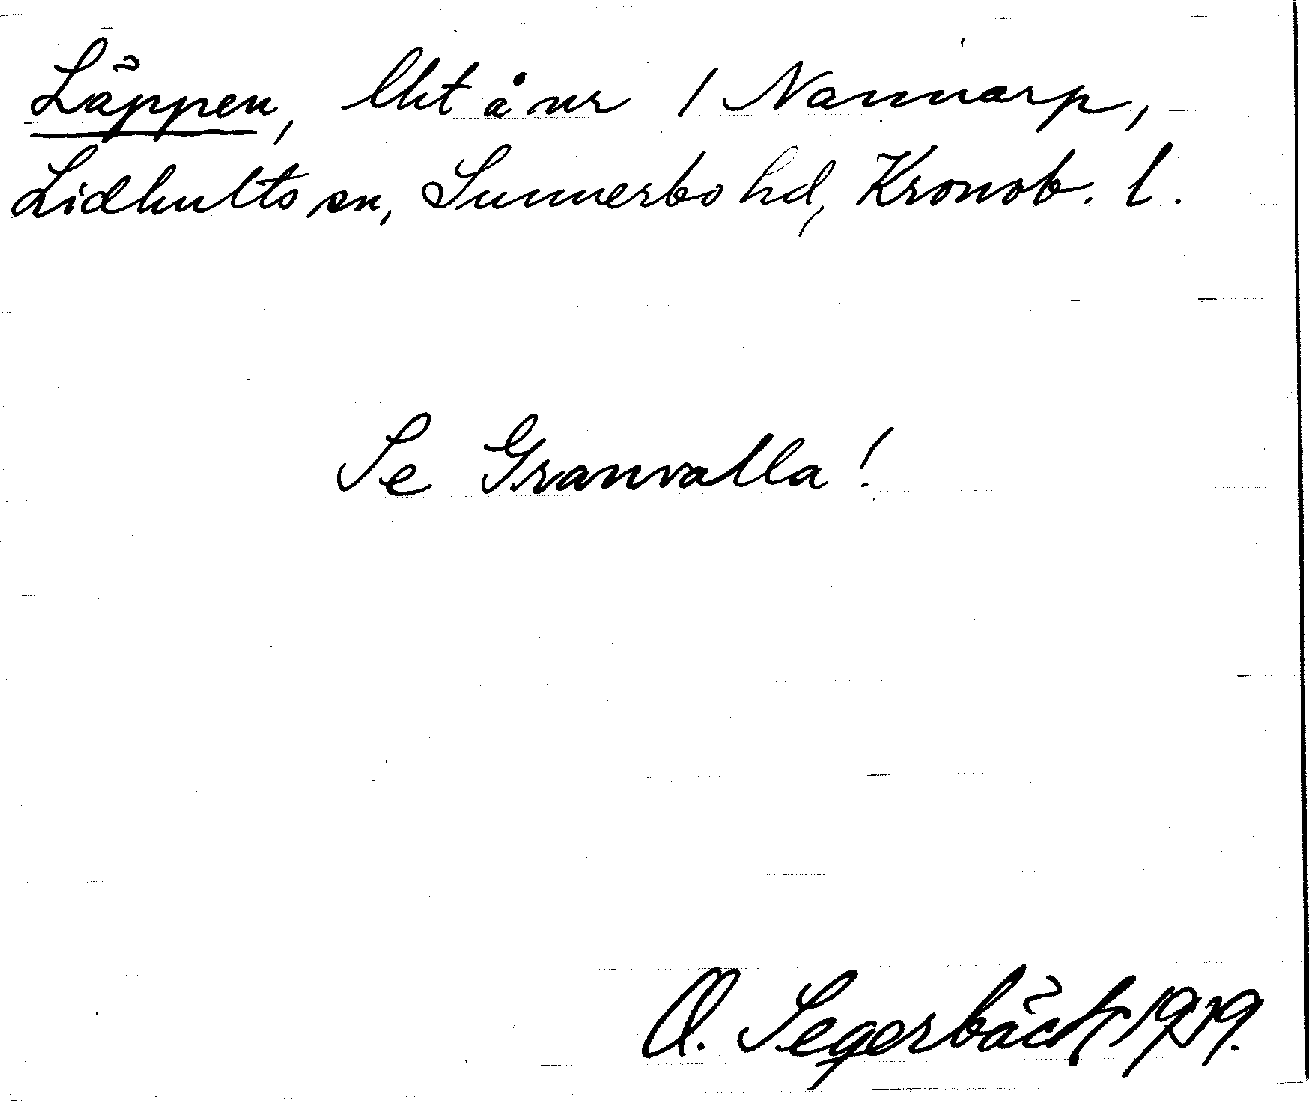 Läppen, lht å nr 1 Nannarp,
Lidhults sn, Sunnerbo hd, Kronob. l.
Se Granvalla!
O. Segerbäck 1919.